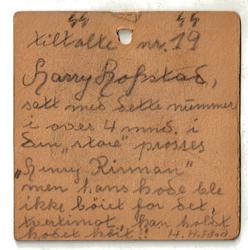 tiltalte nr. 19
Harry Hofstad,
satt med dette nummer
i over 4 mnd. i
den „store" prosses
„Henry Rinnan"
men hans hode ble
ikke böiet for det,
tvertimot, han holdt
hodet höit!!